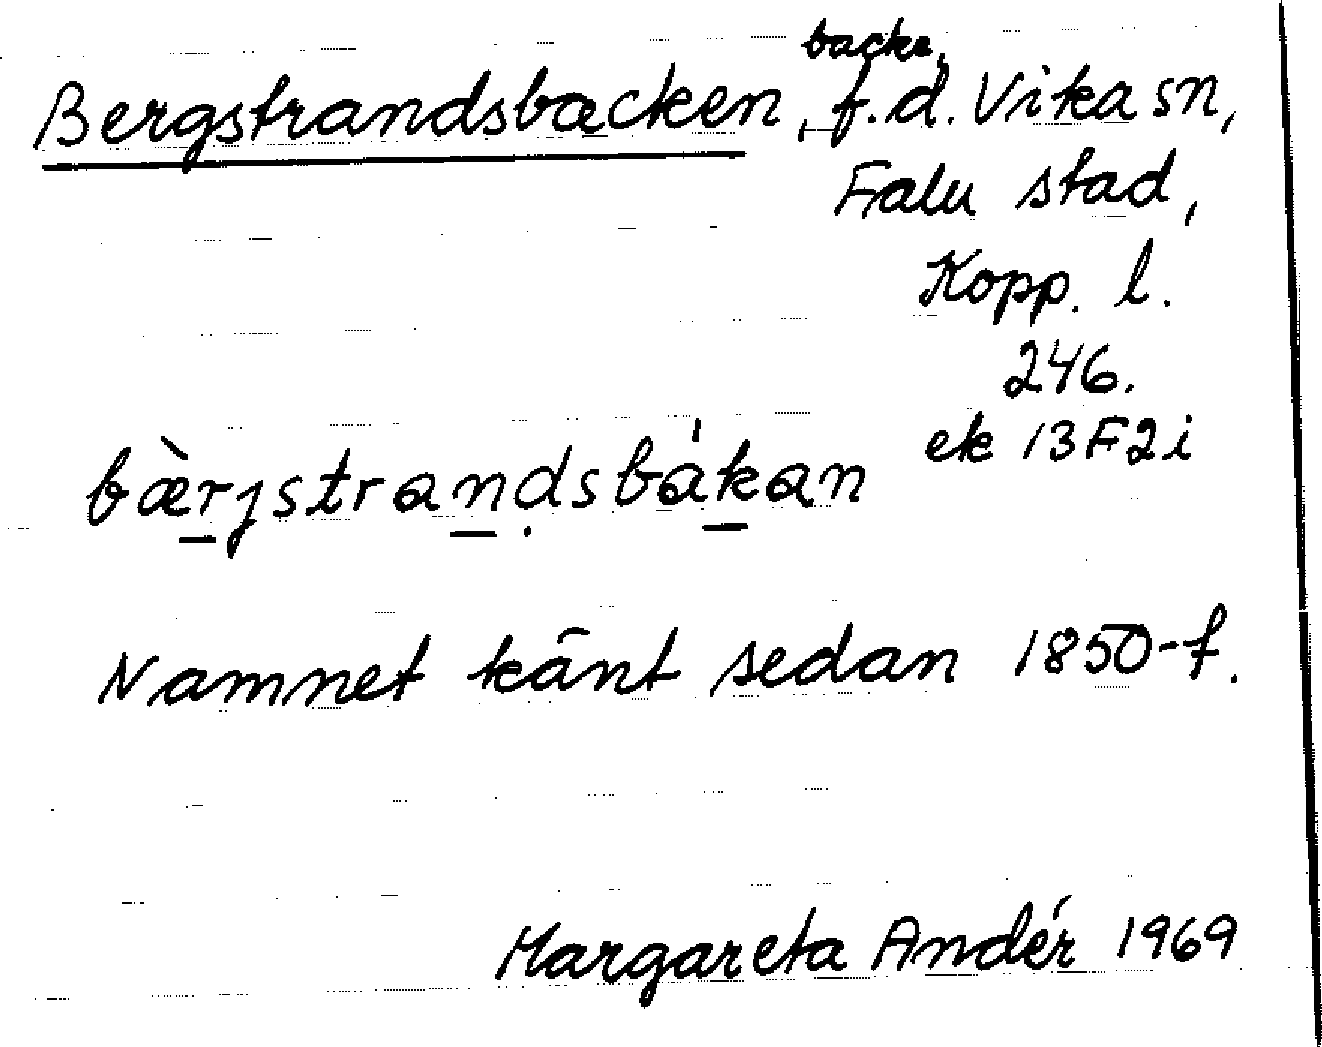 Bergstrandsbacken, backe, f.d. Vika sn,
Falu stad,
Kopp. l.
246.
ek 13F2i
bæ̀r̲jstran̲ḍsbák̲an
Namnet känt sedan 1850-t.
Margareta Andér 1969